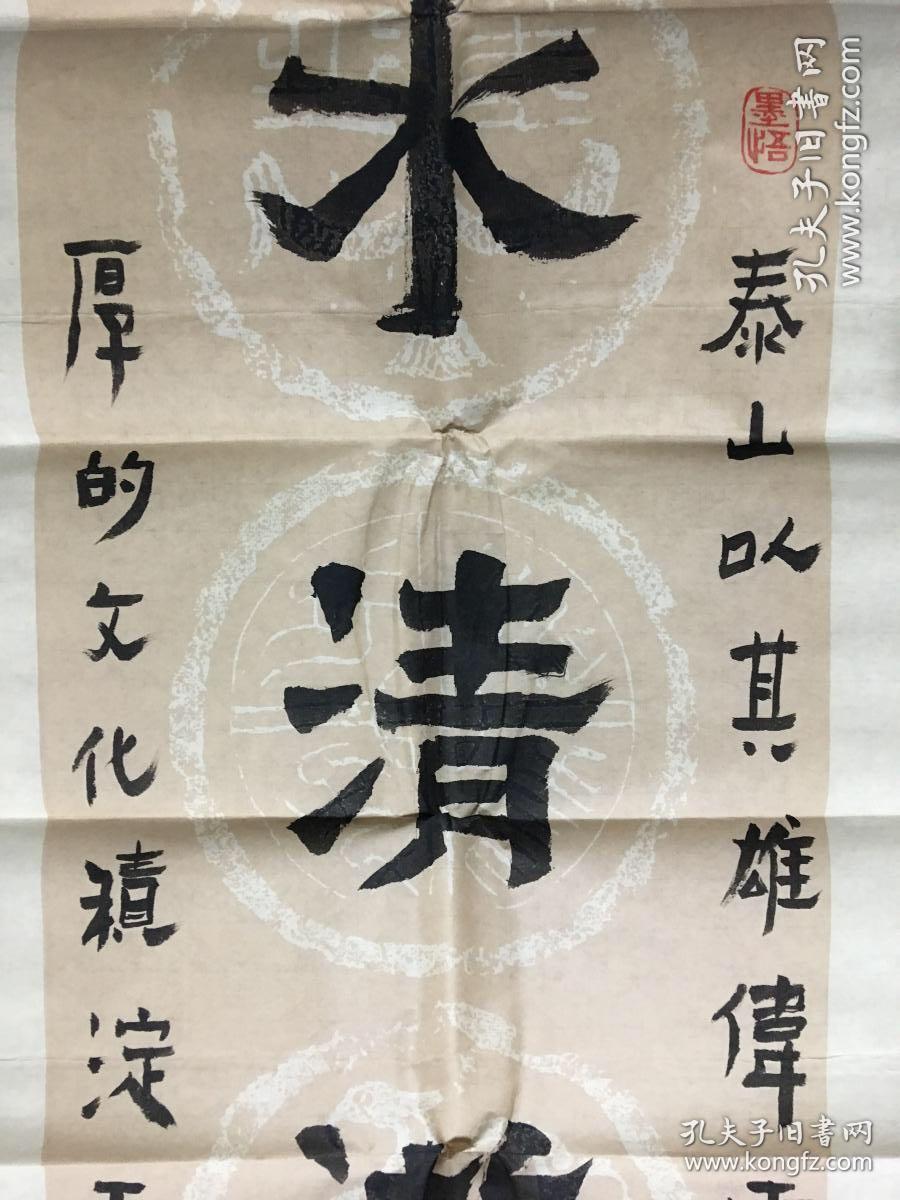 墨悟
泰山以其雄偉
水清
厚的文化積淀
孔夫子旧书网
www.kongfz.com
孔夫子旧书网
www.kongfz.com